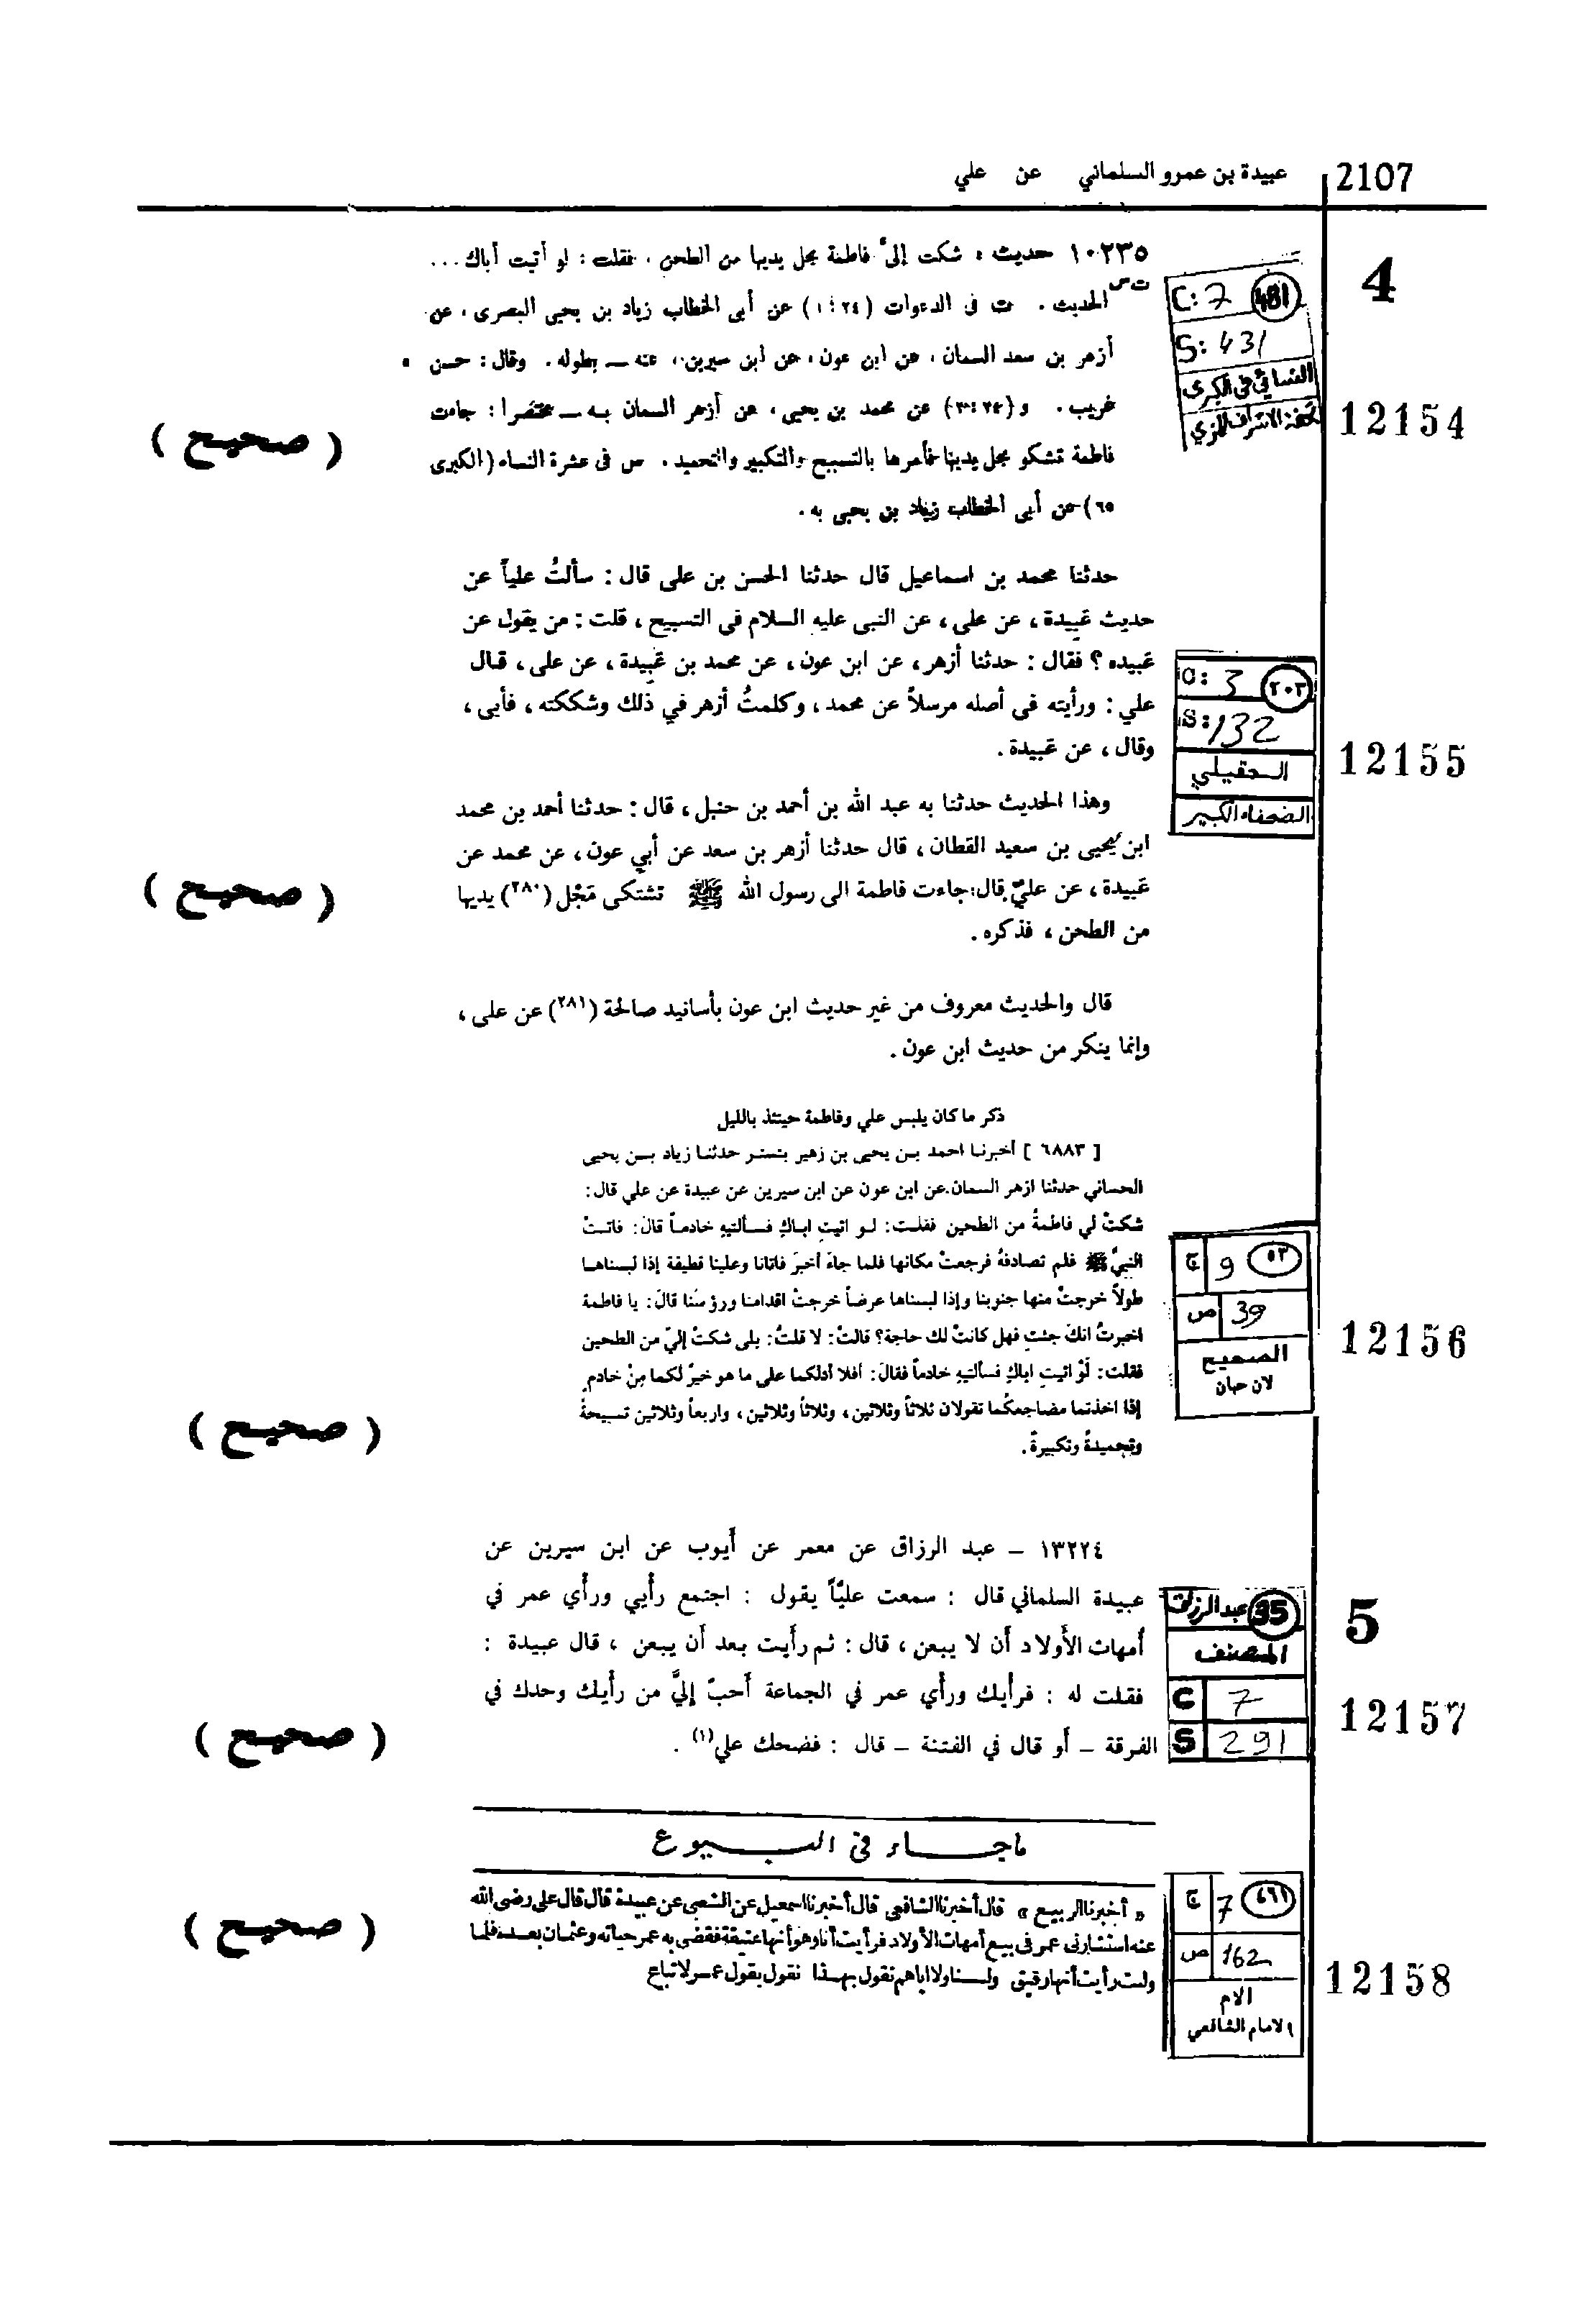 2107
عبيدة بن عمرو السلماني عن علي
4
12154
C: 7 481
S: 431
النسائي في الكبرى
تحفة الاشراف للمزي
١٠٢٣٥ حديث : شكت إلىَّ فاطمة مجل يديها من الطحن ، فقلت : لو أتيت أباك ...
ت س
الحديث . ت فى الدعوات (٢٤ : ١) عن أبى الخطاب زياد بن يحيى البصرى ، عن
أزهر بن سعد السمان ، عن ابن عون ، عن ابن سيرين ، عنه ــ بطوله . وقال : حسن
غريب . و (٢٤ : ٣) عن محمد بن يحيى ، عن أزهر السمان بـه ــ مختصرا : جاءت
فاطمة تشكو مجل يديها فأمرها بالتسبيح والتكبير والتحميد . س فى عشرة النساء (الكبرى
٦٥) عن أبى الخطاب زياد بن يحيى به .
( صحيح )
12155
C: 3 ٢٠٣
S: 132
العقيلي
الضعفاء الكبير
حدثنا محمد بن اسماعيل قال حدثنا الحسن بن على قال : سألتُ علياً عن
حديث عَبِيدة ، عن على ، عن النبى عليه السلام فى التسبيح ، قلت : من يقول عن
عَبِيده ؟ فقال : حدثنا أزهر ، عن ابن عون ، عن محمد بن عَبِيدة ، عن على ، قال
علي : ورأيته فى أصله مرسلاً عن محمد ، وكلمتُ أزهر في ذلك وشككته ، فأبى ،
وقال ، عن عَبيدة .
وهذا الحديث حدثنا به عبد الله بن أحمد بن حنبل ، قال : حدثنا أحمد بن محمد
ابن يحيى بن سعيد القطان ، قال حدثنا أزهر بن سعد عن أبي عون ، عن محمد عن
عَبيدة ، عن عليّ قال : جاءت فاطمة الى رسول الله ﷺ تشتكى مَجْل (٢٨٠) يديها
من الطحن ، فذكره .
( صحيح )
قال والحديث معروف من غير حديث ابن عون بأسانيد صالحة (٢٨١) عن على ،
وإنما ينكر من حديث ابن عون .
12156
ج 9 ٥٣
ص 39
الصحيح
لابن حبان
ذكر ما كان يلبس علي وفاطمة حينئذ بالليل
[ ٦٨٨٣ ] أخبرنا احمد بن يحيى بن زهير بتستر حدثنا زياد بن يحيى
الحساني حدثنا ازهر السمان عن ابن عون عن ابن سيرين عن عبيدة عن علي قال :
شكتْ لي فاطمةُ من الطحين فقلت : لو اتيتِ اباكِ فسألتيهِ خادماً قال : فاتتْ
النبيَّ ﷺ فلم تصادفهُ فرجعتْ مكانها فلما جاءَ أخبرَ فاتانا وعلينا قطيفة إذا لبسناها
طولاً خرجتْ منها جنوبنا وإذا لبسناها عرضاً خرجتْ اقدامنا ورؤسنا قالَ : يا فاطمة
اخبرتُ انكَ جئتِ فهل كانتْ لك حاجة؟ قالتْ : لا قلتُ : بلى شكتْ إليَّ من الطحين
فقلت : لَوْ اتيتِ اباكِ فسألتيهِ خادماً فقالَ : أفلا أدلكما على ما هو خيرٌ لكما مِنْ خادمٍ
إذا اخذتما مضاجعكُما تقولان ثلاثاً وثلاثين ، وثلاثاً وثلاثين ، واربعاً وثلاثين تسبيحةً
وتحميدةً وتكبيرةً .
( صحيح )
5
12157
عبد الرزاق 35
المصنف
C 7
S 291
١٣٢٢٤ – عبد الرزاق عن معمر عن أيوب عن ابن سيرين عن
عبيدة السلماني قال : سمعت عليًّا يقول : اجتمع رأيي ورأي عمر في
أمهات الأولاد أن لا يبعن ، قال : ثم رأيت بعد أن يبعن ، قال عبيدة :
فقلت له : فرأيك ورأي عمر في الجماعة أحبّ إليَّ من رأيك وحدك في
الفرقة – أو قال في الفتنة – قال : فضحك علي(١) .
( صحيح )
ماجاء في البيوع
12158
ج 7 ٤٦١
ص 162
الام
للامام الشافعي
« أخبرنا الربيع » قال أخبرنا الشافعى قال أخبرنا اسمعيل عن الشعبى عن عبيدة قال قال على رضى الله
عنه استشارنى عمر فى بيع أمهات الأولاد فرأيت أنا وهو أنها عتيقة فقضى به عمر حياته وعثمان بعده فلما
وليت رأيت أنها رقيق ولسنا ولا اياهم نقول بهذا نقول بقول عمر لا تباع
( صحيح )